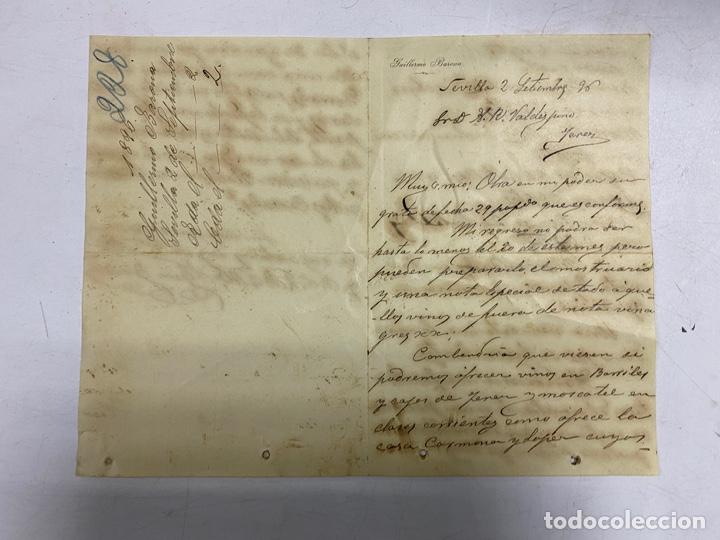 228
1896
Guillermo Barona
Sevilla 2 de Septiembre
Rda d/ — 2
Cda d/ — 2.
Guillermo Barona
Sevilla 2 Setiembre 96
Sr D A. R. Valdespino
Jerez
Muy s. mio: Obra en mi poder su
grata de fecha 29 pasado que es conforme.
Mi regreso no podra ser
hasta lo menos el 20 de este mes pero
pueden preparar el muestrario
y una nota especial de todo aque
llos vinos de fuera de nota vina
gres xx.
Combendria que viesen si
podremos ofrecer vinos en Barriles
y cajas de Jerez y moscatel en
clases corrientes como ofrece la
casa Carmona y Lopez cuyos
todocoleccion
todocoleccion.net